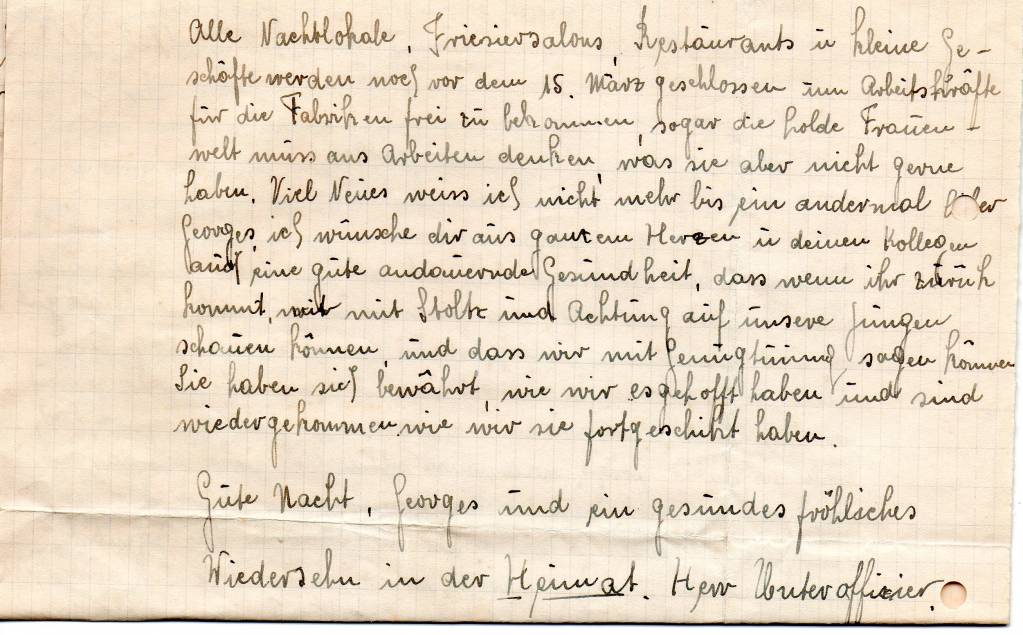 Alle Nachtlokale, Friesiersalons, Restaurants u kleine Ge-
schäfte werden noch vor dem 15. März geschlossen um Arbeitskräfte
für die Fabriken frei zu bekommen, sogar die holde Frauen-
welt muss ans Arbeiten denken, was sie aber nicht gerne
haben. Viel Neues weiss ich nicht mehr bis ein andermal
Georges, ich wünsche dir aus ganzem Herzen u deinen Kollegen
auch eine gute andauernde Gesundheit, dass wenn ihr zurük
kommt, wir mit Stoltz und Achtung auf unsere Jungen
schauen können, und dass wir mit Genugtuung sagen können
Sie haben sich bewährt, wie wir es gehofft haben und sind
wiedergekommen wie wir sie fortgeschikt haben.
Gute Nacht, Georges und ein gesundes fröhliches
Wiedersehn in der Heimat. Herr Unteroffizier.